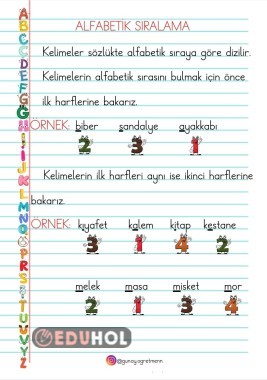 ALFABETİK SIRALAMA
Kelimeler sözlükte alfabetik sıraya göre dizilir.
Kelimelerin alfabetik sırasını bulmak için önce
ilk harflerine bakarız.
ÖRNEK: biber sandalye ayakkabı
2 3 1
Kelimelerin ilk harfleri aynı ise ikinci harflerine
bakarız.
ÖRNEK: kıyafet kalem kitap kestane
3 1 4 2
melek masa misket mor
2 1 3 4
EDUHOL
@gunayogretmenn